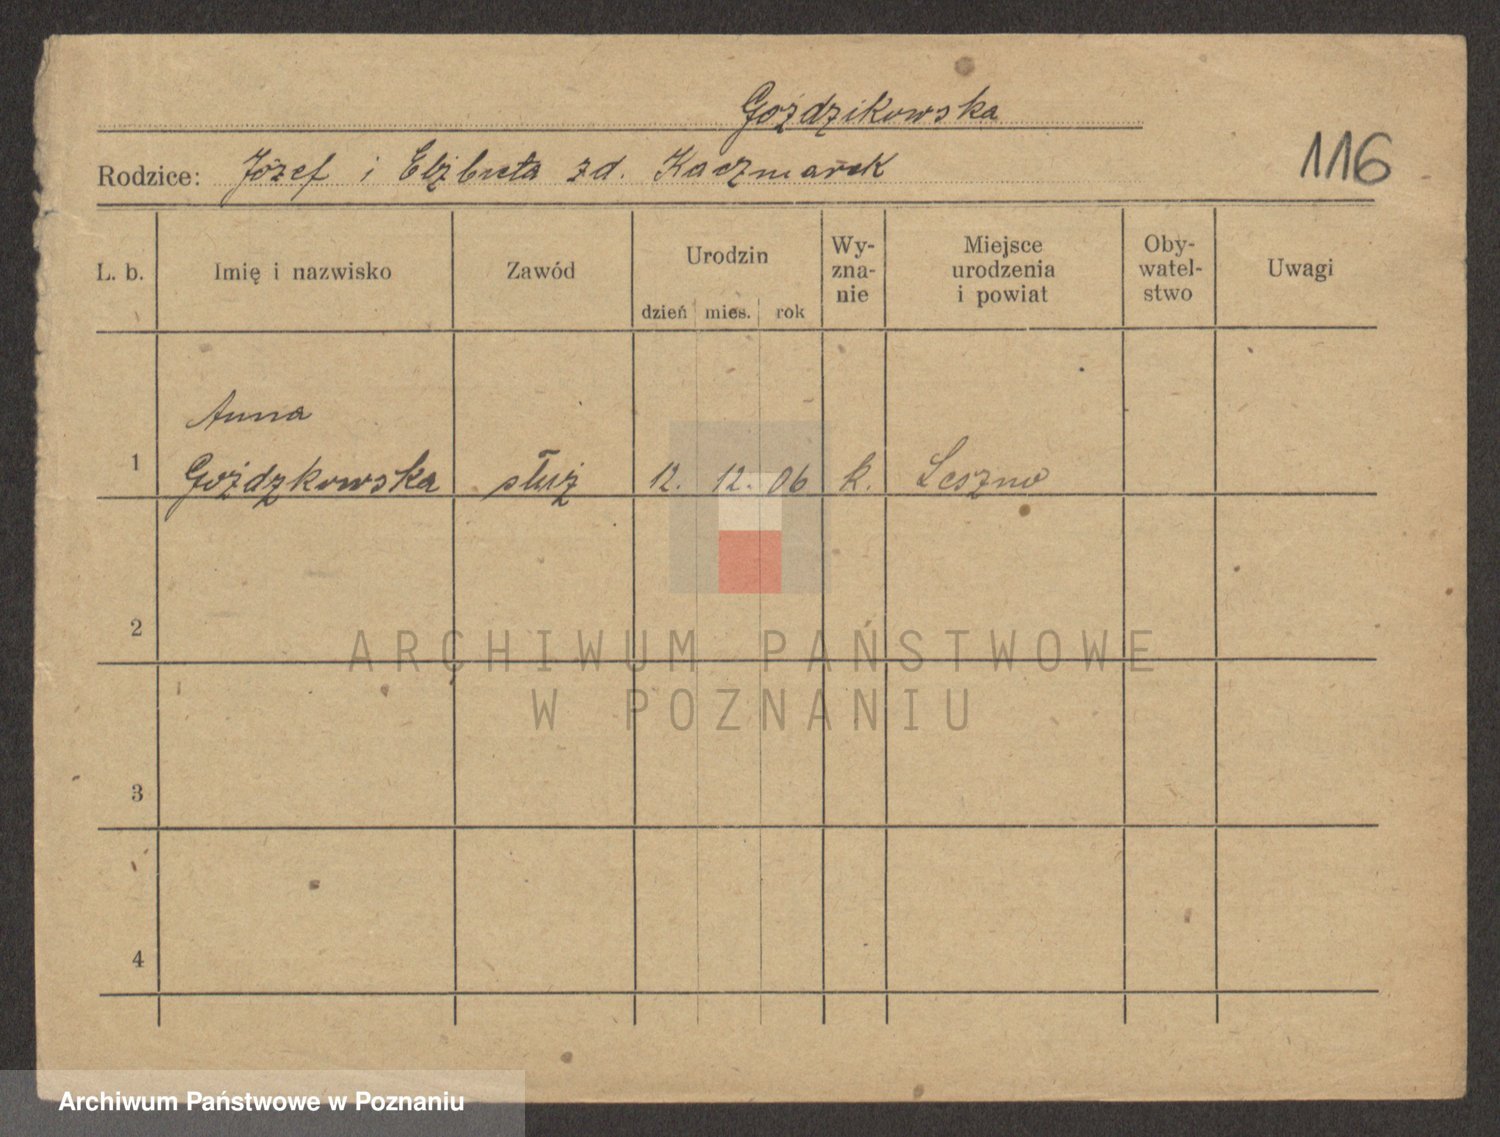 Goździkowska
116
Rodzice: Józef i Elżbieta zd. Kaczmarek
L. b.
Imię i nazwisko
Zawód
Urodzin
dzień mies. rok
Wy-
zna-
nie
Miejsce
urodzenia
i powiat
Oby-
watel-
stwo
Uwagi
Anna
1 Goździkowska służ 12. 12. 06 k. Leszno
2
3
4
ARCHIWUM PAŃSTWOWE
W POZNANIU
Archiwum Państwowe w Poznaniu